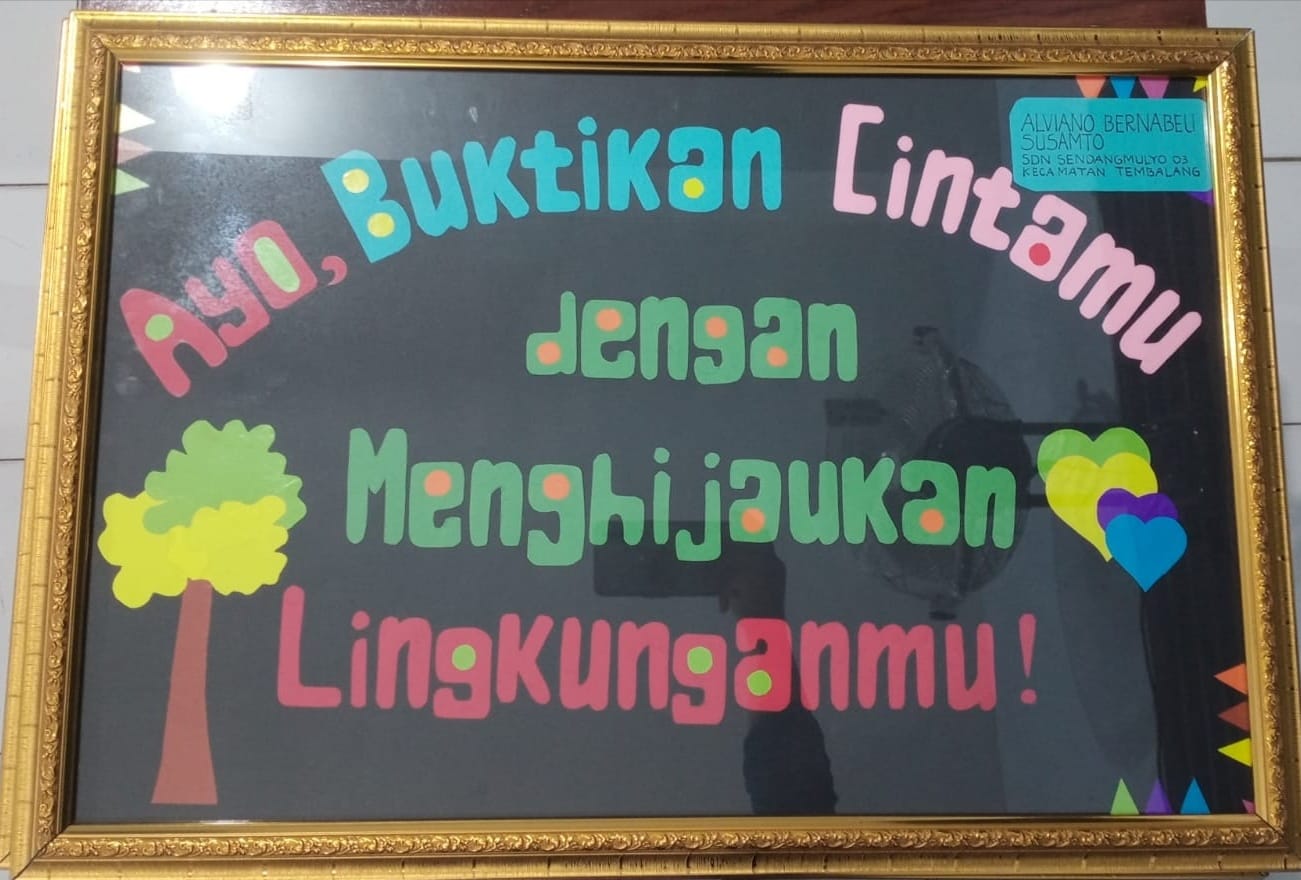 Ayo, Buktikan Cintamu
dengan
Menghijaukan
Lingkunganmu!
ALVIANO BERNABEU
SUSAMTO
SDN SENDANGMULYO 03
KECAMATAN TEMBALANG